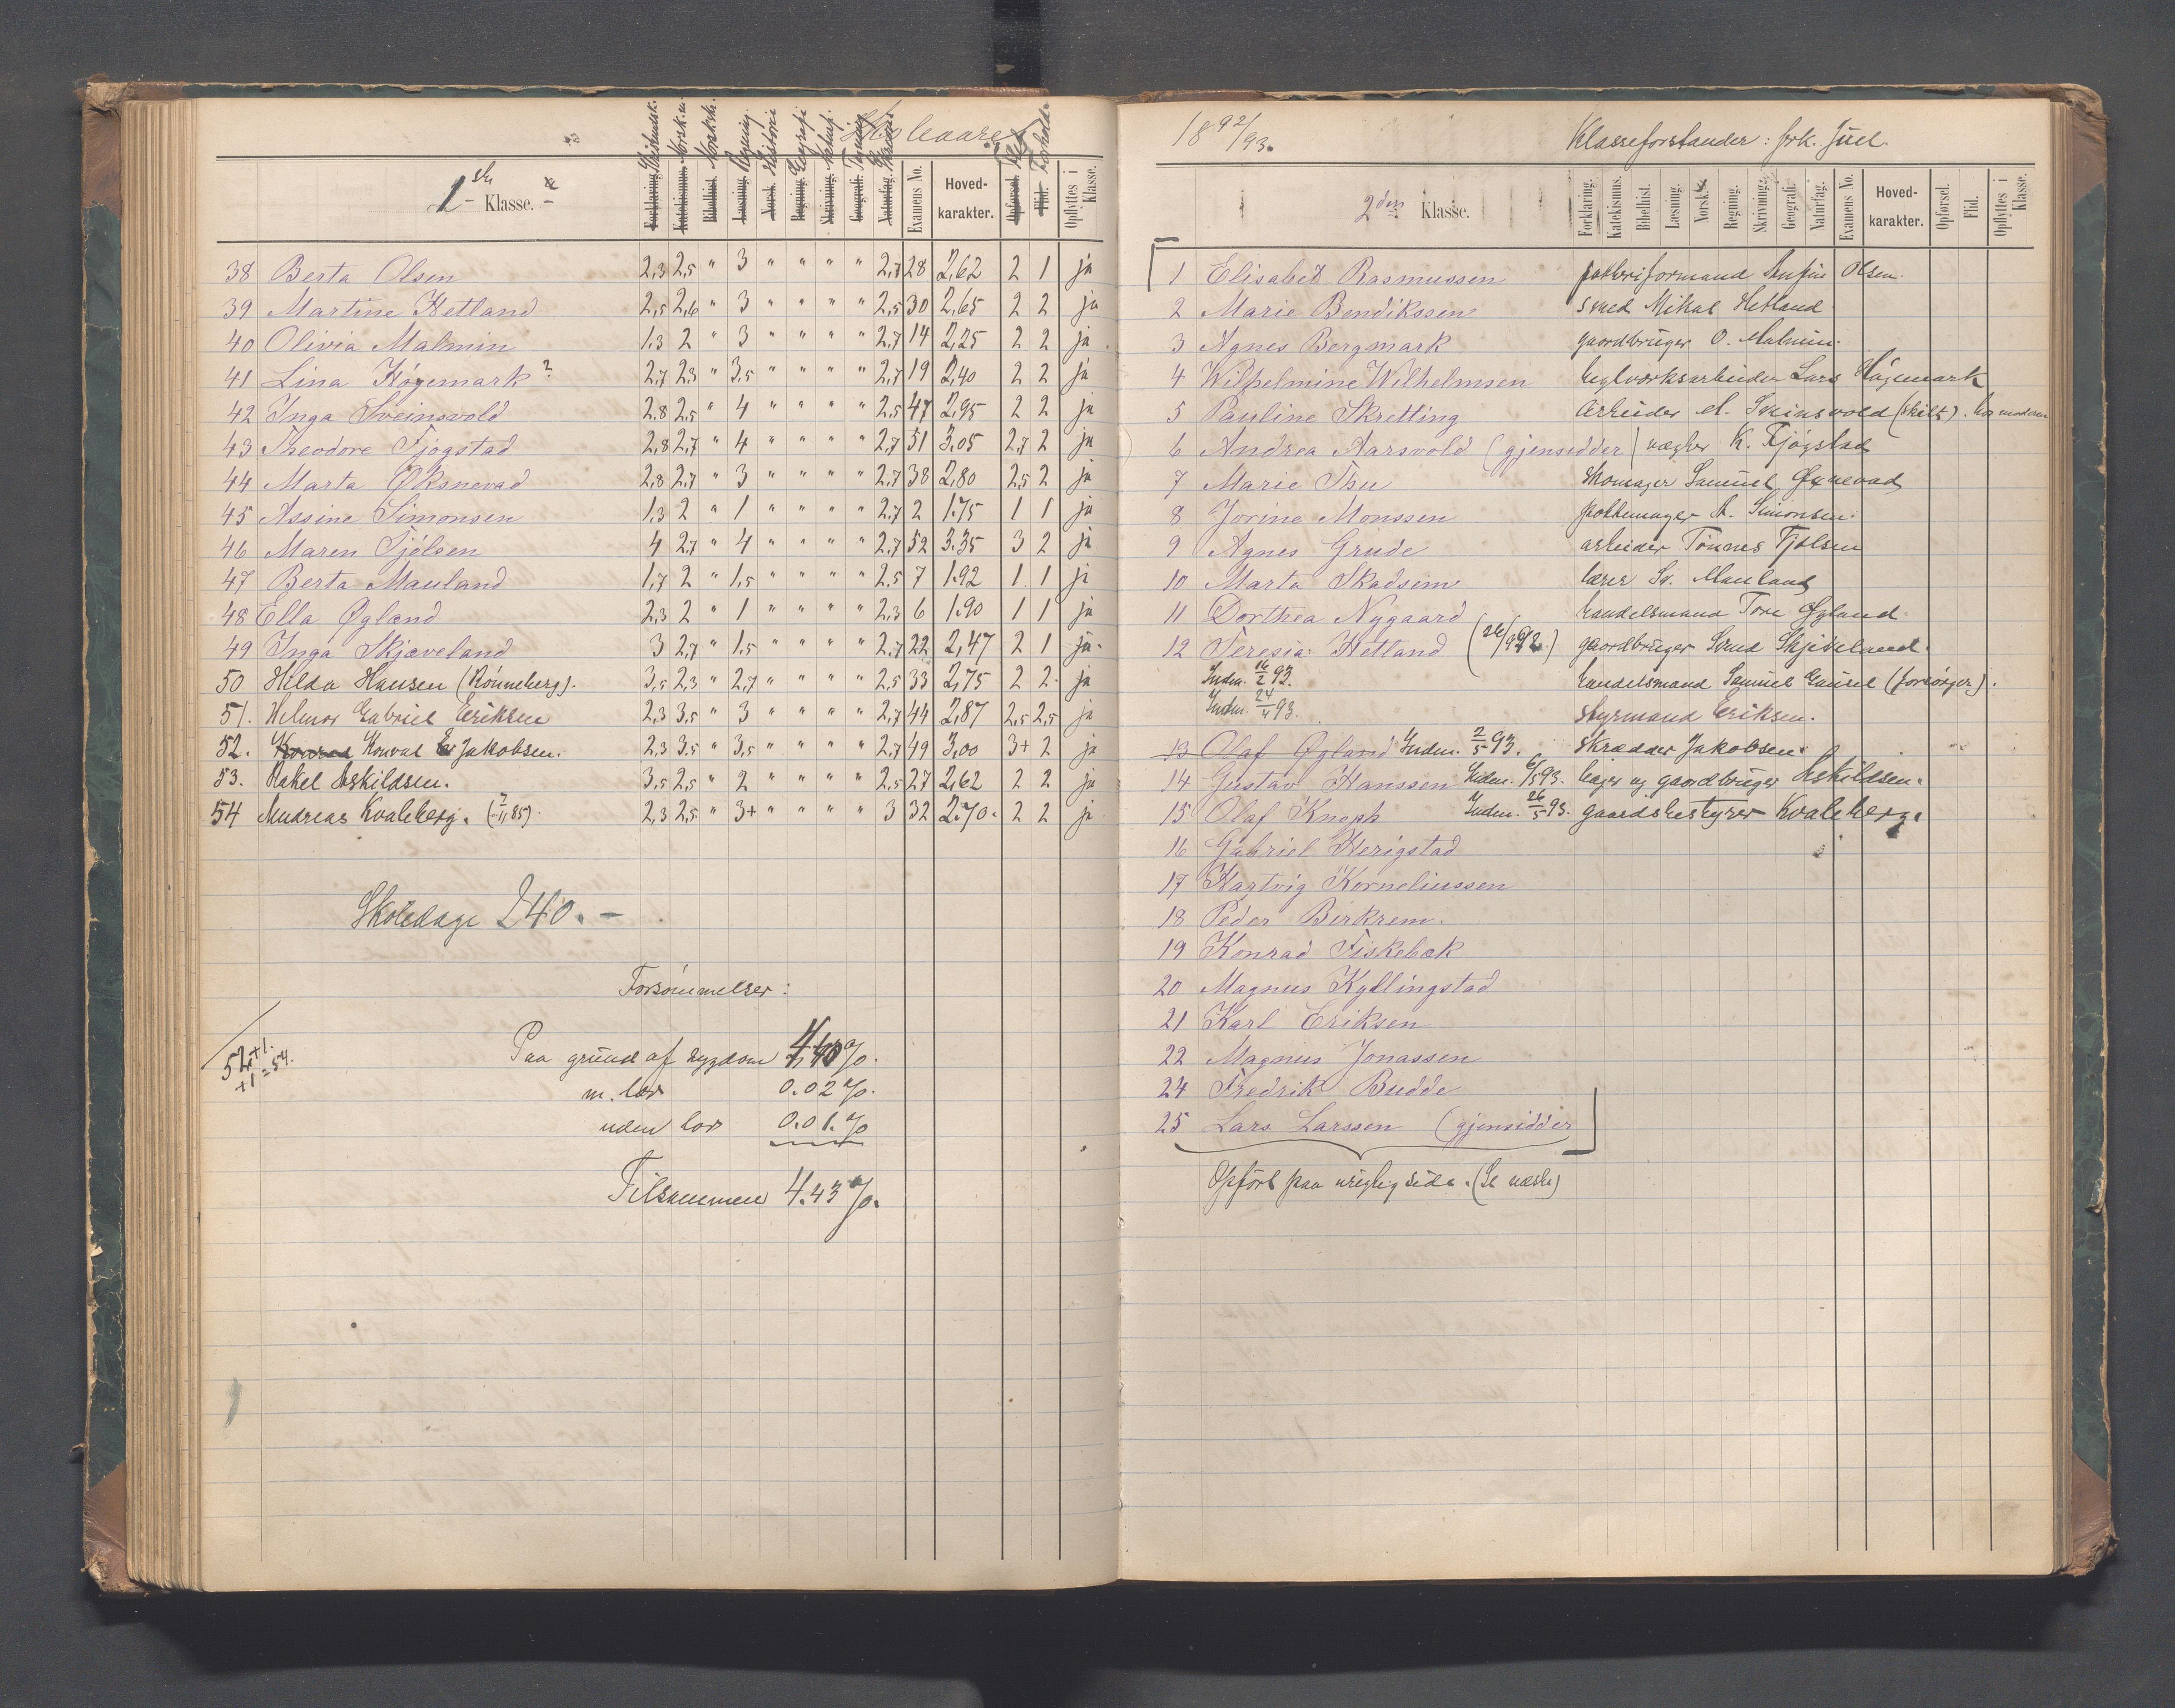 Skoleaaret
1ste Klasse.
Forklaring. Katekismus. Bibelhist. Læsning. Norsk. Regning. Skrivning. Geografi. Naturfag. Examens No. Hovedkarakter. Opførsel. Flid. Opflyttes i Klasse.
38 Berta Olsen 2,3 2,5 " 3 " " " " 2,7 28 2,62 2 1 ja
39 Martine Hetland 2,5 2,6 " 3 " " " " 2,5 30 2,65 2 2 ja
40 Olivia Malmin 1,3 2 " 3 " " " " 2,7 14 2,25 2 2 ja
41 Lina Høgemark ? 2,7 2,3 " 3,5 " " " " 2,7 19 2,40 2 2 ja
42 Inga Sveinsvold 2,8 2,5 " 4 " " " " 2,5 47 2,95 2 2 ja
43 Theodore Tjøgstad 2,8 2,7 " 4 " " " " 2,7 51 3,05 2,7 2 ja
44 Marta Øksnevad 2,8 2,7 " 3 " " " " 2,7 38 2,80 2,5 2 ja
45 Assine Simonsen 1,3 2 " 1 " " " " 2,7 2 1.75 1 1 ja
46 Maren Tjølsen 4 2,7 " 4 " " " " 2,7 52 3.35 3 2 ja
47 Berta Mauland 1,7 2 " 1,5 " " " " 2,5 7 1.92 1 1 ja
48 Ella Øgland 2,3 2 " 1 " " " " 2,3 6 1.90 1 1 ja
49 Inga Skjæveland 3 2,7 " 1,5 " " " " 2,7 22 2,47 2 1 ja.
50 Hilda Hansen (Rönneberg). 3,5 2,3 " 2,7 " " " " 2,5 33 2,75 2 2 ja
51. Helmor Gabriel Eriksen 2,3 3,5 " 3 " " " " 2,7 44 2,87 2,5 2,5 ja
52. Konrad Jakobsen. 2,3 3,5 " 3,5 " " " " 2,7 49 3,00 3+ 2 ja
53. Rakel Askildsen. 3,5 2,5 " 2 " " " " 2,5 27 2,62 2 2 ja
54 Andreas Kvaleberg. 2,3 2,5 " 3+ " " " " 3 32 2.70. 2 2 ja
Skoledage 240. -
Forsömmelser:
52+1.
+1=54.
Paa grund af sygdom 4,40 %.
m. lov 0.02 %.
uden lov 0.01. %
Tilsammen 4.43 %.
1892/93.
Klasseforstander: frk. Juel.
2den Klasse.
Forklaring. Katekismus. Bibelhist. Læsning. Norsk. Regning. Skrivning. Geografi. Naturfag. Examens No. Hovedkarakter. Opførsel. Flid. Opflyttes i Klasse.
1 Elisabet Rasmussen Olsen.
2 Marie Bendikssen smed Mikal Hetland.
3 Agnes Bergmark gaardbruger O. Malmin.
4 Wilhelmine Wilhelmsen teglværksarbeider Lars Høgemark
5 Pauline Skretting Arbeider Sveinsvold (skilt). hos moderen
6 Andrea Aarsvold (gjensidder) vægter K. Tjøgstad
7 Marie Thu skomager Samuel Øxnevad
8 Jorine Monssen pottemager A. Simonsen.
9 Agnes Grude arbeider Tönnes Tjølsen
10 Marta Skadsem lærer Sv. Mauland
11 Dorthea Nygaard handelsmand Tore Øgland.
12 Teresia Hetland (26/9 92.) gaardbruger Svend Skjæveland.
Indm. 16/2 93. handelsmand Samuel Gausel (forsörger).
Indm. 24/4 93. styrmand Eriksen.
13 Olaf Øgland Indm. 2/5 93. skrædder Jakobsen.
14 Gustav Hanssen Indm. 6/5 93. bager og gaardbruger Askildsen.
15 Olaf Knoph Indm. 26/5 93. gaardsbestyrer Kvaleberg.
16 Gabriel Herigstad
17 Hartvig Korneliussen
18 Peder Birkrem.
19 Konrad Fiskebæk
20 Magnus Kyllingstad
21 Karl Eriksen
22 Magnus Jonassen
24 Fredrik Budde
25 Lars Larssen (gjensidder
Opfört paa urigtig side. (Se næste)